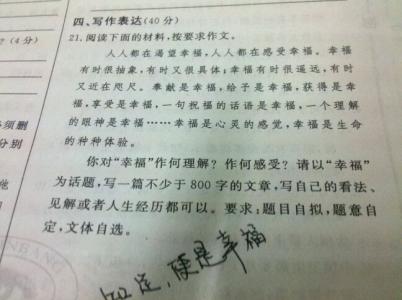 四、写作表达(40 分)
(4 分)
21. 阅读下面的材料,按要求作文。
人人都在渴望幸福,人人都在感受幸福。幸福
有时很抽象,有时又很具体;幸福有时很遥远,有时
又近在咫尺。奉献是幸福,给予是幸福,获得是幸
福,享受是幸福,一句祝福的话语是幸福,一个理解
的眼神是幸福……幸福是心灵的感觉,幸福是生命
的种种体验。
须删
分别
你对“幸福”作何理解?作何感受?请以“幸福”
为话题,写一篇不少于 800 字的文章,写自己的看法、
他
见解或者人生经历都可以。要求:题目自拟,题意自
定,文体自选。
知足,便是幸福